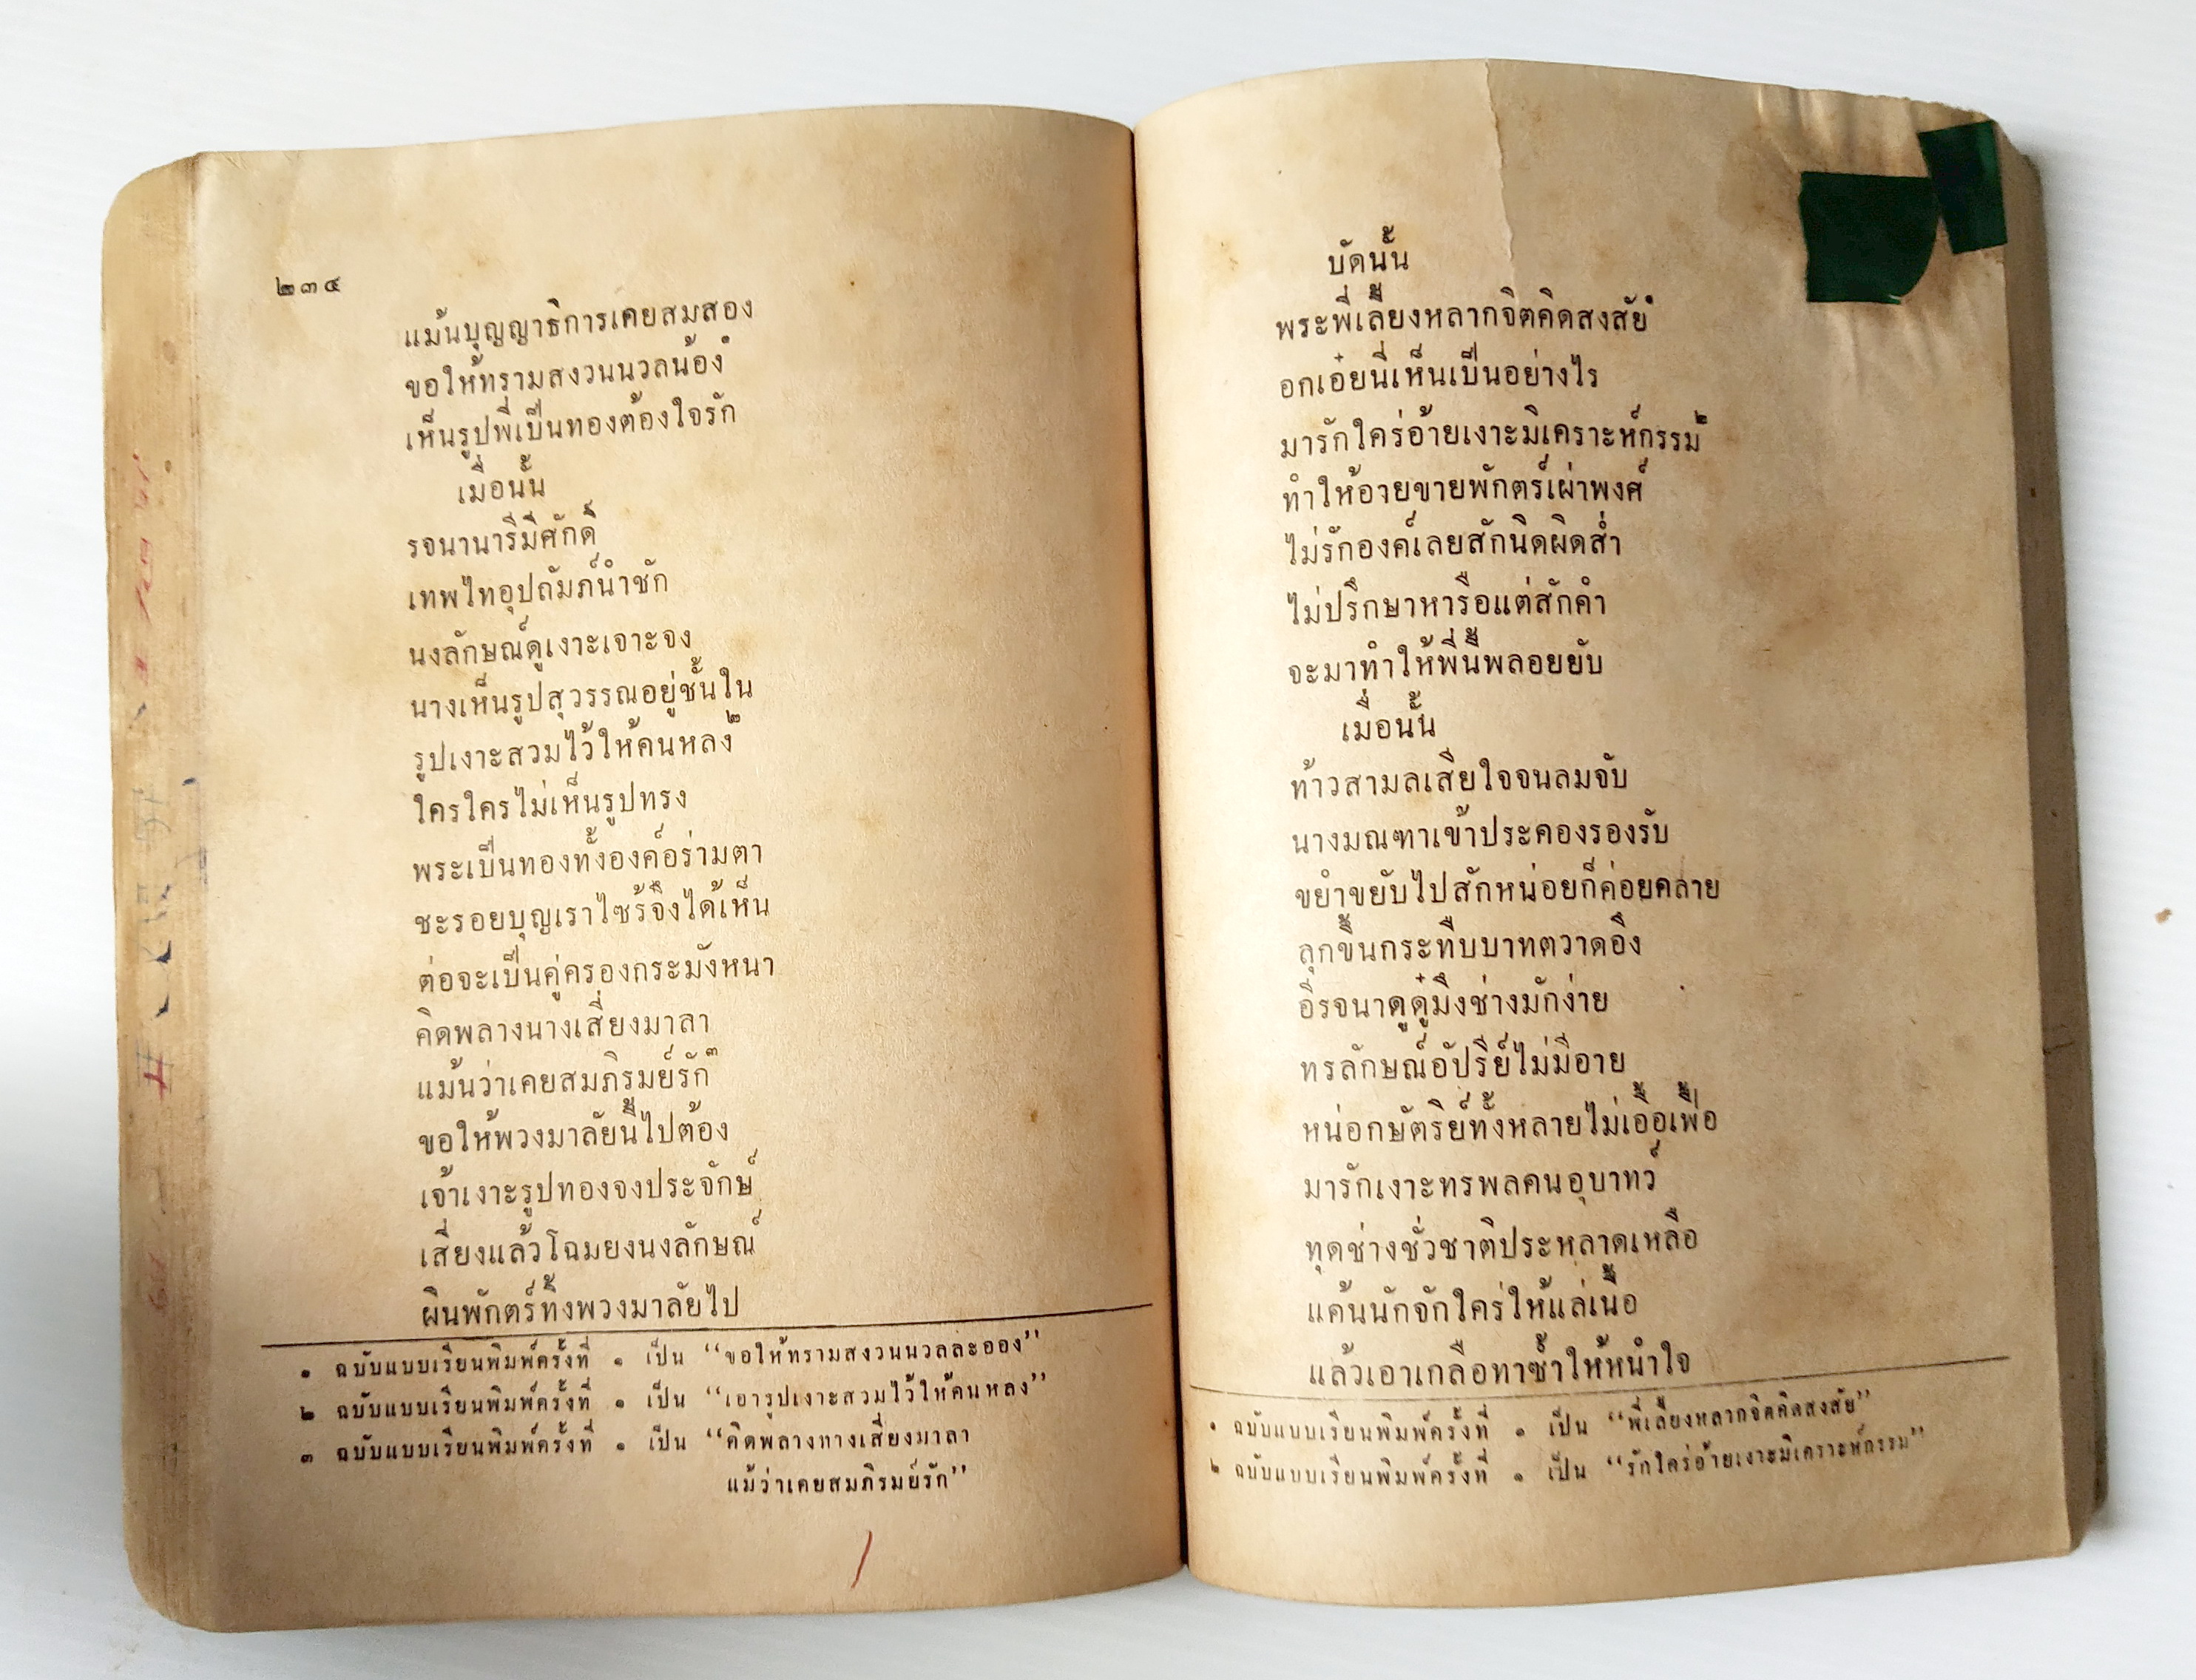 ๒๓๔
แม้นบุญญาธิการเคยสมสอง
ขอให้ทรามสงวนนวลน้อง๑
เห็นรูปพี่เป็นทองต้องใจรัก
เมื่อนั้น
รจนานารีมีศักดิ์
เทพไทอุปถัมภ์นำชัก
นงลักษณ์ดูเงาะเจาะจง
นางเห็นรูปสุวรรณอยู่ชั้นใน
รูปเงาะสวมไว้ให้คนหลง๒
ใครใครไม่เห็นรูปทรง
พระเป็นทองทั้งองค์อร่ามตา
ชะรอยบุญเราไซร้จึงได้เห็น
ต่อจะเป็นคู่ครองกระมังหนา
คิดพลางนางเสี่ยงมาลา
แม้นว่าเคยสมภิรมย์รัก๓
ขอให้พวงมาลัยนี้ไปต้อง
เจ้าเงาะรูปทองจงประจักษ์
เสี่ยงแล้วโฉมยงนงลักษณ์
ผินพักตร์ทิ้งพวงมาลัยไป
๑ ฉบับแบบเรียนพิมพ์ครั้งที่ ๑ เป็น “ขอให้ทรามสงวนนวลละออง”
๒ ฉบับแบบเรียนพิมพ์ครั้งที่ ๑ เป็น “เอารูปเงาะสวมไว้ให้คนหลง”
๓ ฉบับแบบเรียนพิมพ์ครั้งที่ ๑ เป็น “คิดพลางทางเสี่ยงมาลา
แม้ว่าเคยสมภิรมย์รัก”
บัดนั้น
พระพี่เลี้ยงหลากจิตคิดสงสัย๑
อกเอ๋ยนี่เห็นเป็นอย่างไร
มารักใคร่อ้ายเงาะมิเคราะห์กรรม๒
ทำให้อายขายพักตร์เผ่าพงศ์
ไม่รักองค์เลยสักนิดผิดส่ำ
ไม่ปรึกษาหารือแต่สักคำ
จะมาทำให้พี่นี้พลอยยับ
เมื่อนั้น
ท้าวสามลเสียใจจนลมจับ
นางมณฑาเข้าประคองรองรับ
ขยำขยับไปสักหน่อยก็ค่อยคลาย
ลุกขึ้นกระทืบบาทตวาดอึง
อีรจนาดูดู๋มึงช่างมักง่าย
ทรลักษณ์อัปรีย์ไม่มีอาย
หน่อกษัตริย์ทั้งหลายไม่เอื้อเฟื้อ
มารักเงาะทรพลคนอุบาทว์
ทุดช่างชั่วชาติประหลาดเหลือ
แค้นนักจักใคร่ให้แล่เนื้อ
แล้วเอาเกลือทาซ้ำให้หนำใจ
๑ ฉบับแบบเรียนพิมพ์ครั้งที่ ๑ เป็น “พี่เลี้ยงหลากจิตคิดสงสัย”
๒ ฉบับแบบเรียนพิมพ์ครั้งที่ ๑ เป็น “รักใคร่อ้ายเงาะมิเคราะห์กรรม”